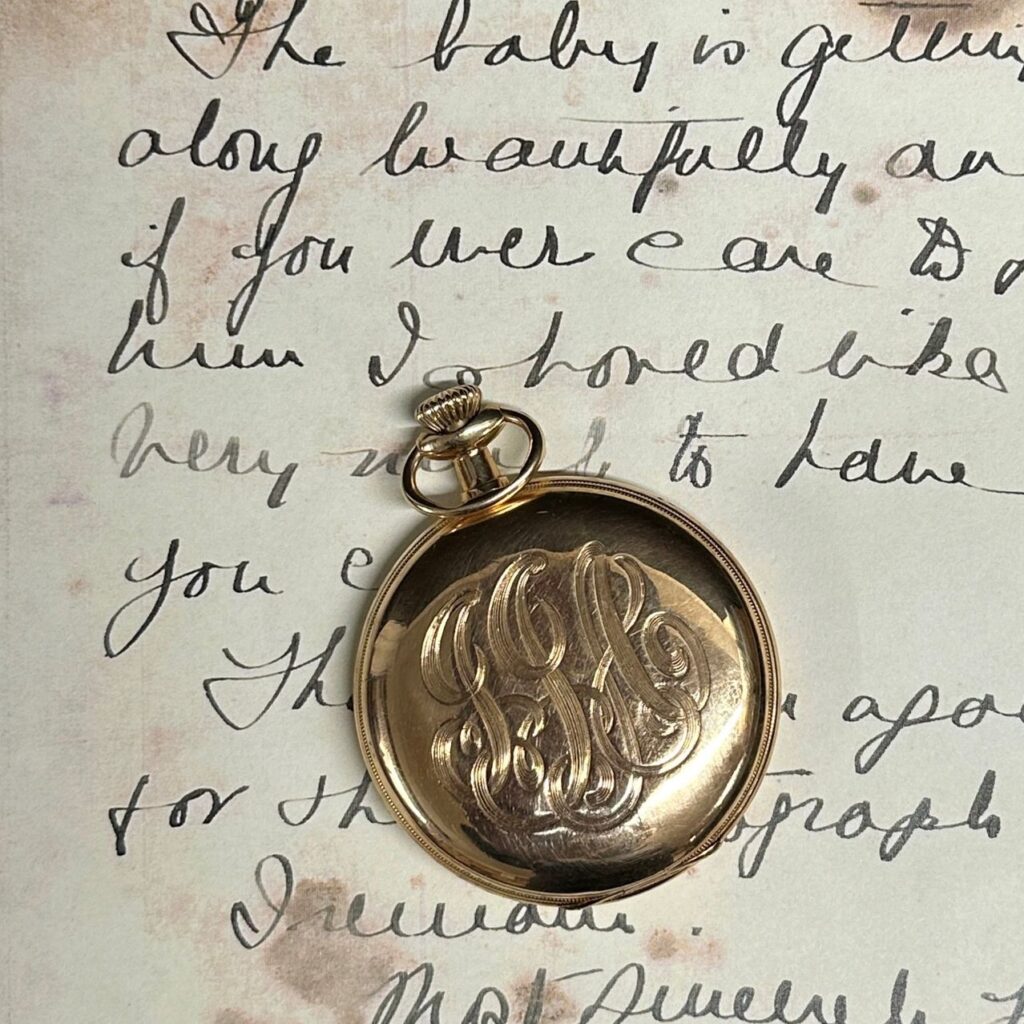 The baby is getting
along beautifully an
if you ever care to
him I should like
very much to have
you
Th
aga
for th graph
I remain.
Most Sincerely